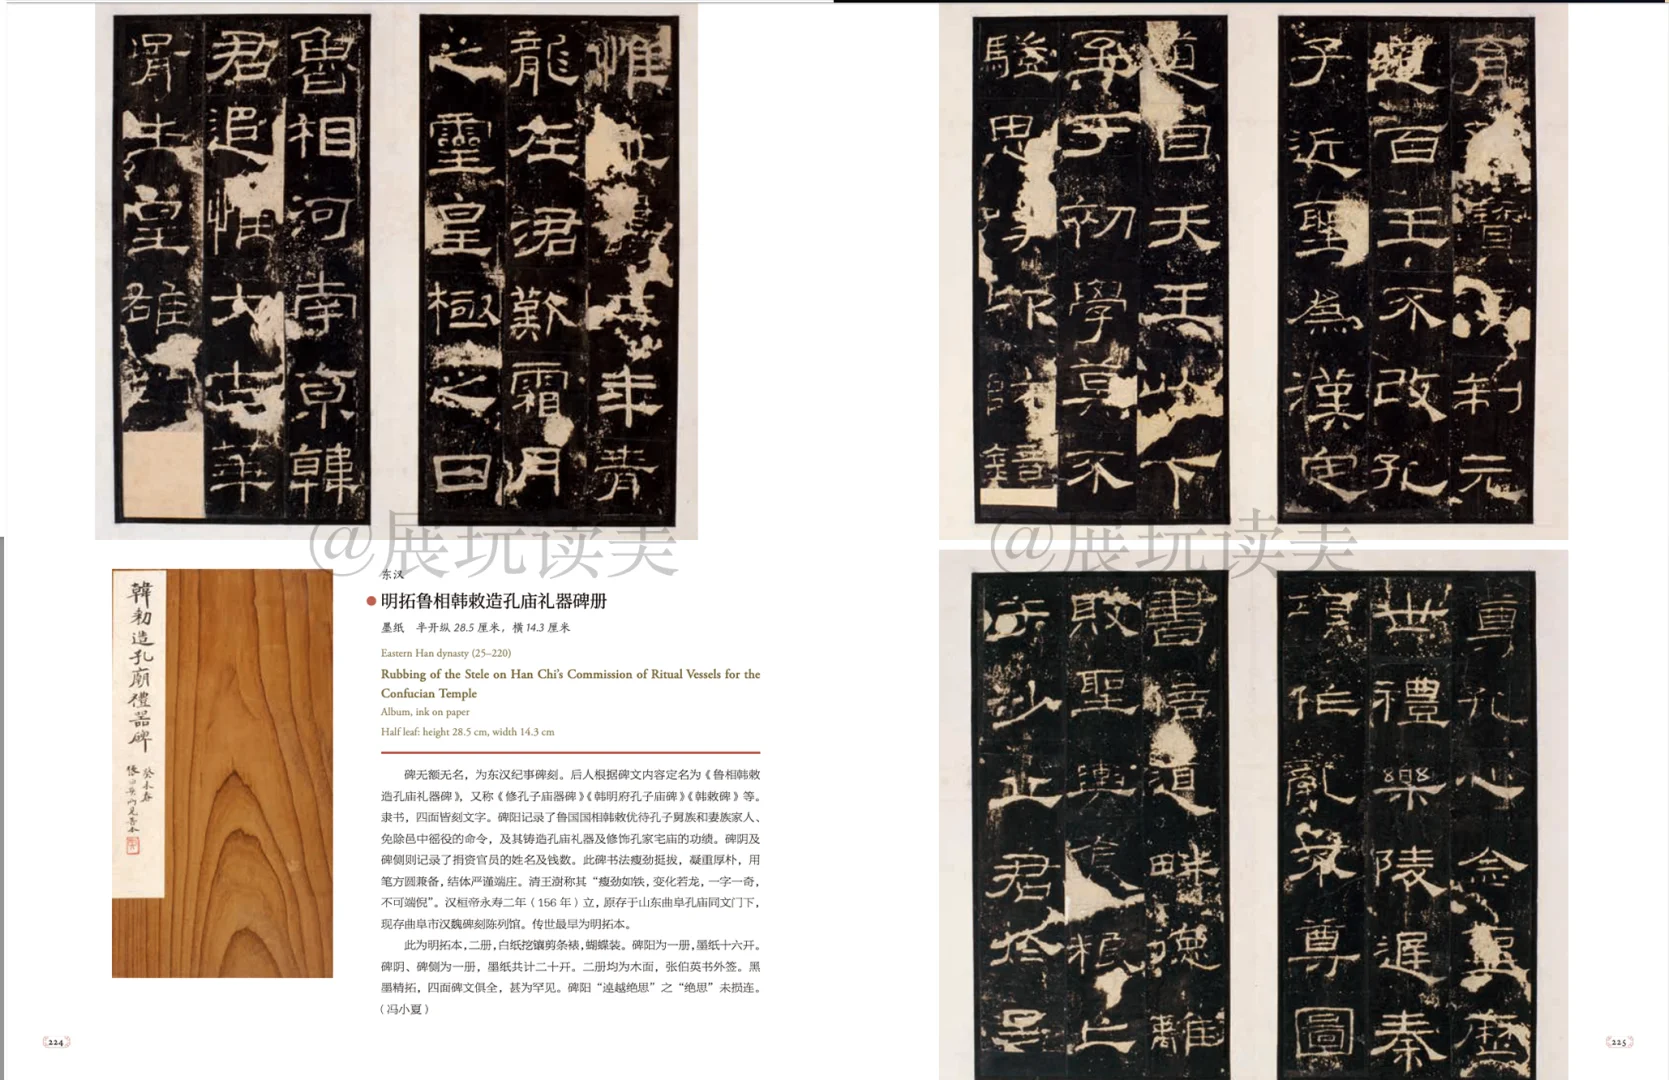 惟永壽二年青
龍在涒歎霜月
之靈皇極之日
魯相河南京韓
君追惟大古華
胥生皇雄
育寶俱制元
道百王不改孔
子近聖為漢定
道自天王以下
至于初學莫不
驥思嘆卬師鏡
@展玩读美
@展玩读美
韓勑造孔廟禮器碑
癸未春
东汉
明拓鲁相韩敕造孔庙礼器碑册
墨纸 半开纵 28.5 厘米，横 14.3 厘米
Eastern Han dynasty (25–220)
Rubbing of the Stele on Han Chi's Commission of Ritual Vessels for the
Confucian Temple
Album, ink on paper
Half leaf: height 28.5 cm, width 14.3 cm
碑无额无名，为东汉纪事碑刻。后人根据碑文内容定名为《鲁相韩敕
造孔庙礼器碑》，又称《修孔子庙器碑》《韩明府孔子庙碑》《韩敕碑》等。
隶书，四面皆刻文字。碑阳记录了鲁国国相韩敕优待孔子舅族和妻族家人、
免除邑中徭役的命令，及其铸造孔庙礼器及修饰孔家宅庙的功绩。碑阴及
碑侧则记录了捐资官员的姓名及钱数。此碑书法瘦劲挺拔，凝重厚朴，用
笔方圆兼备，结体严谨端庄。清王澍称其“瘦劲如铁，变化若龙，一字一奇，
不可端倪”。汉桓帝永寿二年（156 年）立，原存于山东曲阜孔庙同文门下，
现存曲阜市汉魏碑刻陈列馆。传世最早为明拓本。
此为明拓本，二册，白纸挖镶剪条裱，蝴蝶装。碑阳为一册，墨纸十六开。
碑阴、碑侧为一册，墨纸共计二十开。二册均为木面，张伯英书外签。黑
墨精拓，四面碑文俱全，甚为罕见。碑阳“逴越绝思”之“绝思”未损连。
（冯小夏）
尊孔心念聖歷
世禮樂陵遲秦
項作亂不尊圖
書倍道畔德離
敗聖輿食糧亡
于沙丘君於是
224
225